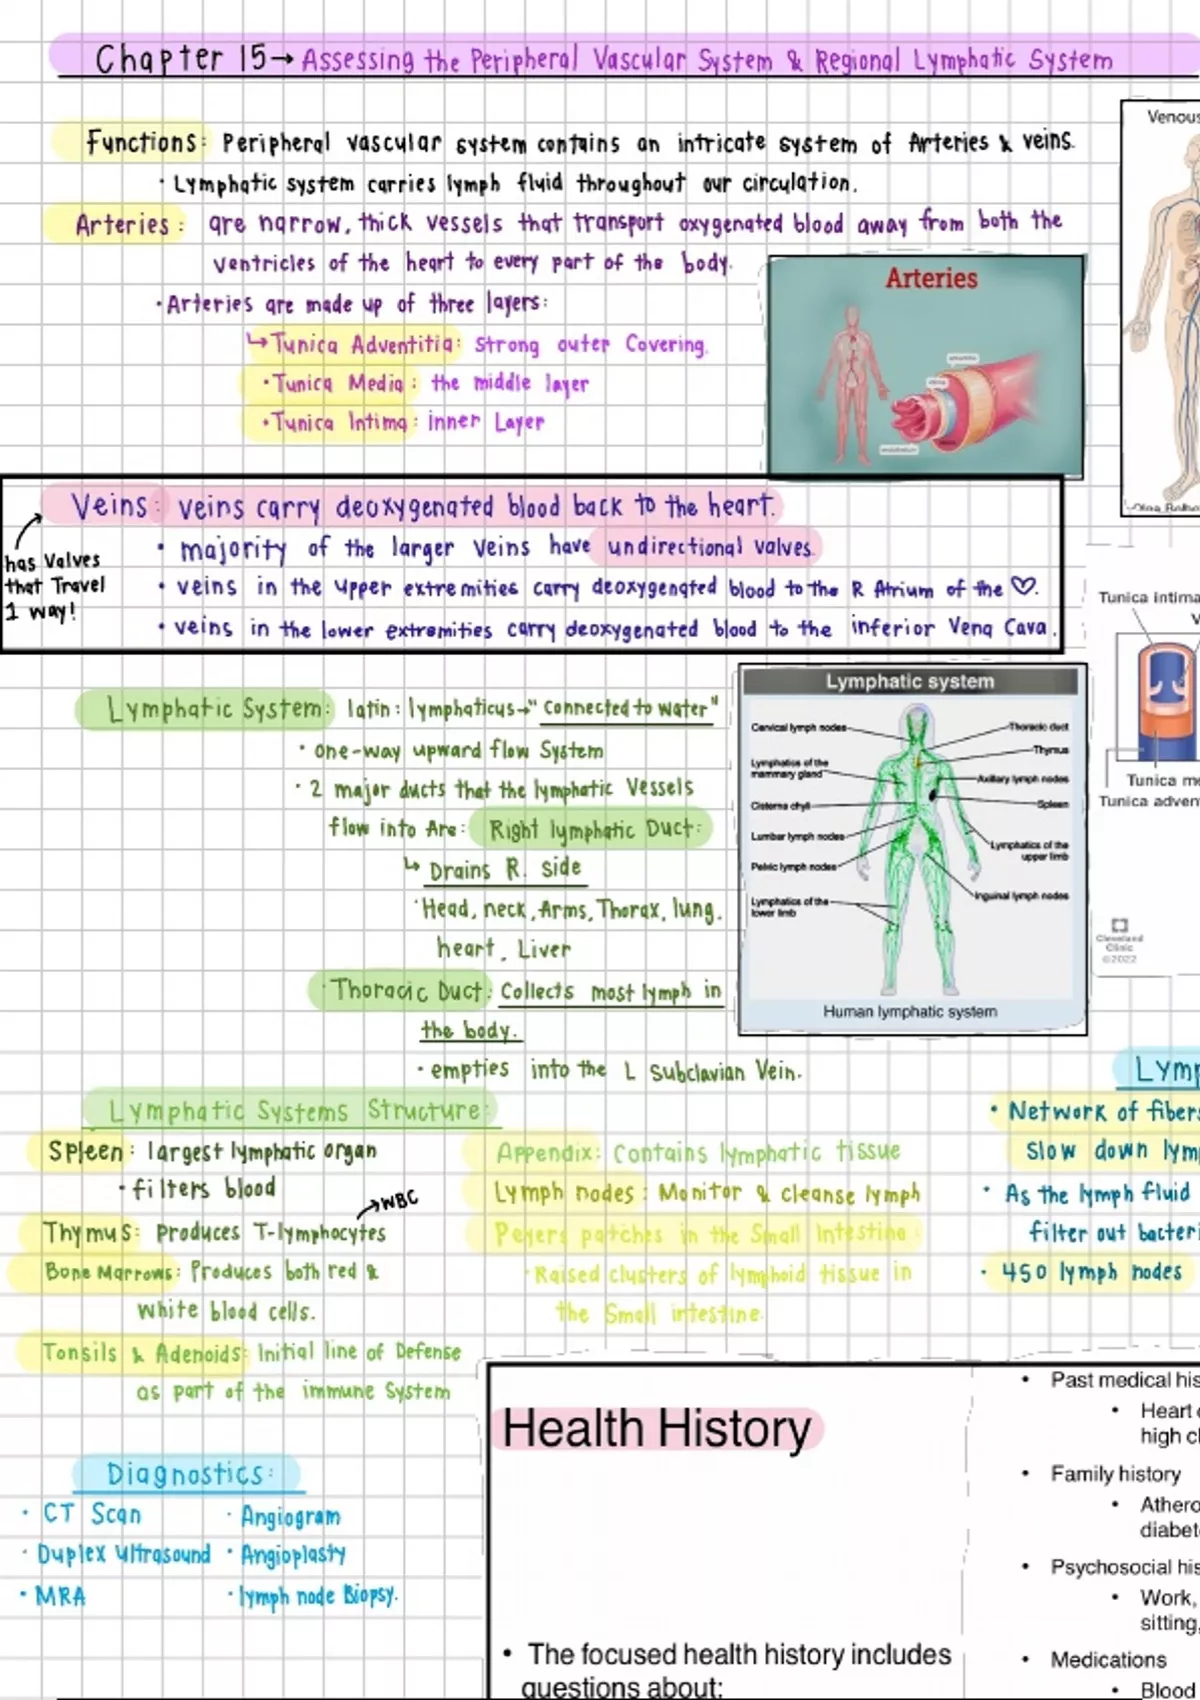 Chapter 15→ Assessing the Peripheral Vascular System & Regional Lymphatic System
Functions: Peripheral vascular system contains an intricate system of Arteries & veins.
· Lymphatic system carries lymph fluid throughout our circulation.
Arteries: are narrow, thick vessels that transport oxygenated blood away from both the
ventricles of the heart to every part of the body.
· Arteries are made up of three layers:
↳ Tunica Adventitia: strong outer Covering.
· Tunica Media: the middle layer
· Tunica Intima: inner Layer
Arteries
Venous
Veins: veins carry deoxygenated blood back to the heart.
· majority of the larger Veins have undirectional valves.
· veins in the upper extremities carry deoxygenated blood to the R Atrium of the ♡.
· veins in the lower extremities carry deoxygenated blood to the inferior Vena Cava.
has Valves
that Travel
1 way!
Tunica intima
V
Tunica me
Tunica adven
Cleveland
Clinic
©2022
Lymphatic System: latin: lymphaticus→"Connected to water"
· one-way upward flow System
· 2 major ducts that the lymphatic Vessels
flow into Are: Right lymphatic Duct:
↳ Drains R. side
· Head, neck, Arms, Thorax, lung,
heart, Liver
· Thoracic Duct: Collects most lymph in
the body.
· empties into the L Subclavian Vein.
Lymphatic system
Cervical lymph nodes
Lymphatics of the
mammary gland
Cisterna chyli
Lumbar lymph nodes
Pelvic lymph nodes
Lymphatics of the
lower limb
Thoracic duct
Thymus
Axillary lymph nodes
Spleen
Lymphatics of the
upper limb
Inguinal lymph nodes
Human lymphatic system
Lymphatic Systems Structure:
Spleen: largest lymphatic organ
· filters blood
Thymus: Produces T-lymphocytes
→WBC
Bone Marrows: Produces both red &
white blood cells.
Tonsils & Adenoids: Initial line of Defense
as part of the immune System
Appendix: Contains lymphatic tissue
Lymph nodes: Monitor & cleanse lymph
Peyers patches in the Small Intestine:
· Raised clusters of lymphoid tissue in
the Small intestine.
Lymp
· Network of fibers
Slow down lymp
· As the lymph fluid
filter out bacteri
· 450 lymph nodes
Diagnostics:
· CT Scan
· Duplex Ultrasound
· MRA
· Angiogram
· Angioplasty
· lymph node Biopsy.
Health History
• The focused health history includes
questions about:
• Past medical his
• Heart
high c
• Family history
• Athero
diabet
• Psychosocial his
• Work,
sitting,
• Medications
• Blood